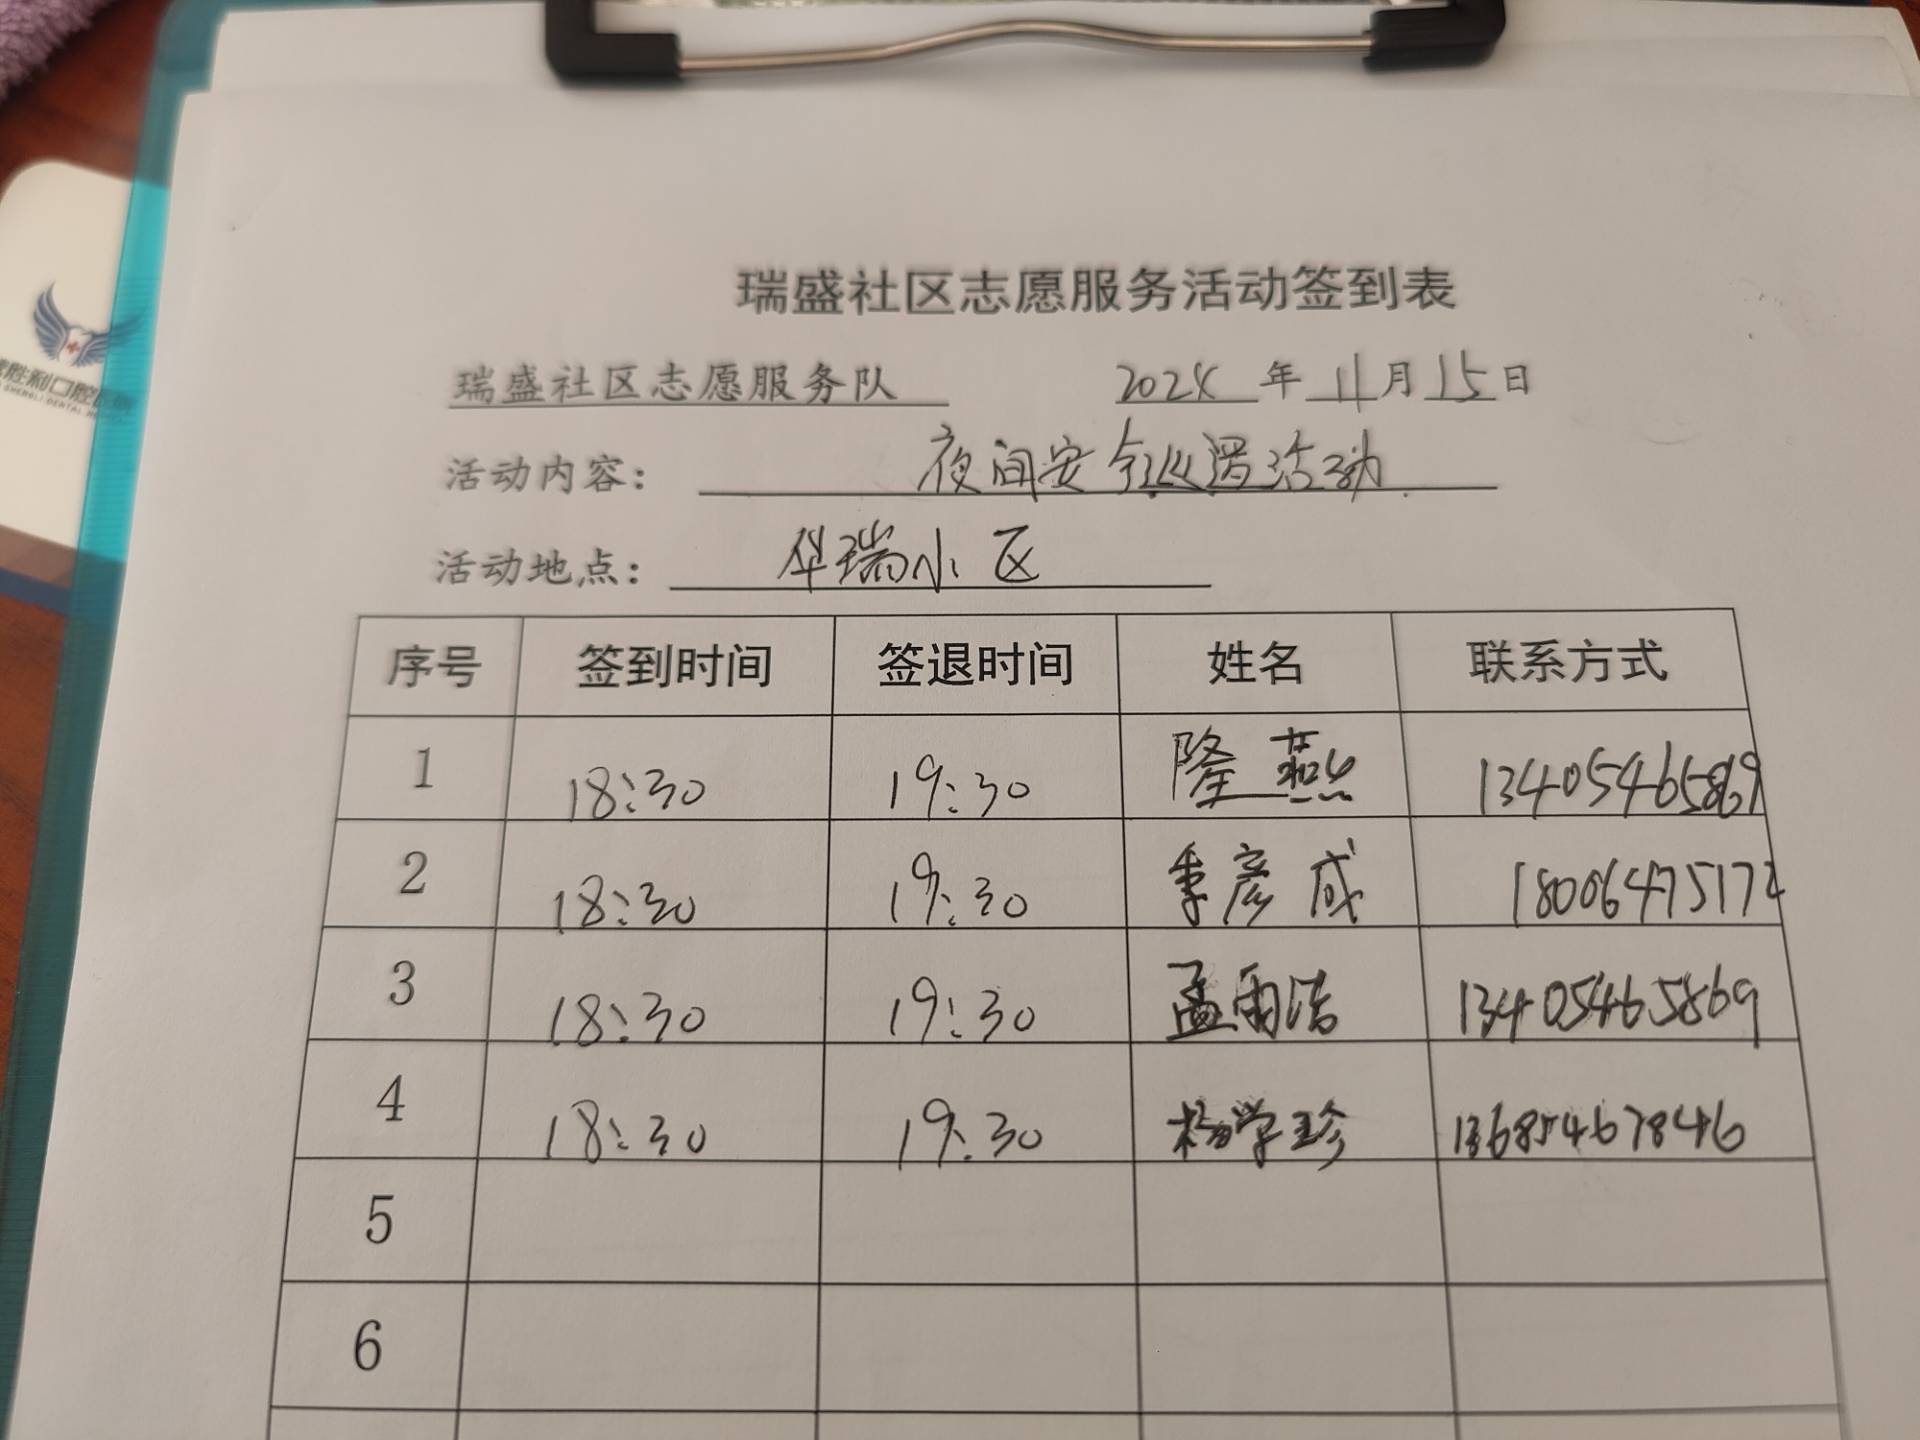 瑞盛社区志愿服务活动签到表
瑞盛社区志愿服务队 2024年11月15日
活动内容：夜间安全巡逻活动
活动地点：华瑞小区
序号 签到时间 签退时间 姓名 联系方式
1 18:30 19:30 隆燕 13405465869
2 18:30 19:30 季彦成 18006475172
3 18:30 19:30 孟雨洁 13405465869
4 18:30 19:30 杨学珍 13685467846
5
6
胜利口腔
SHENGLI DENTAL